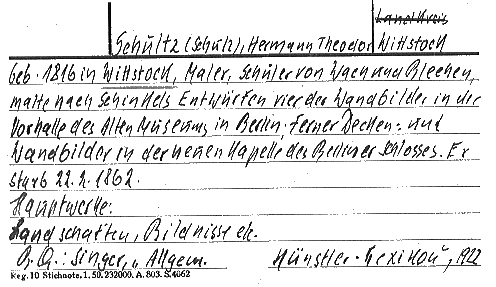 Landkreis
Schultz (Schulz), Hermann Theodor Wittstock
geb. 1816 in Wittstock, Maler, Schüler von Wach und Blechen,
malte nach Schinkels Entwürfen vier der Wandbilder in der
Vorhalle des Alten Museums in Berlin. Ferner Decken- und
Wandbilder in der neuen Kapelle des Berliner Schlosses. Er
starb 22.2.1862.
Hauptwerke:
Landschaften, Bildnisse etc.
Singer, „Allgem. Künstler-Lexikon", 1922
Reg. 10 Stichnote. 1. 50. 232000. A. 803. S. 4062